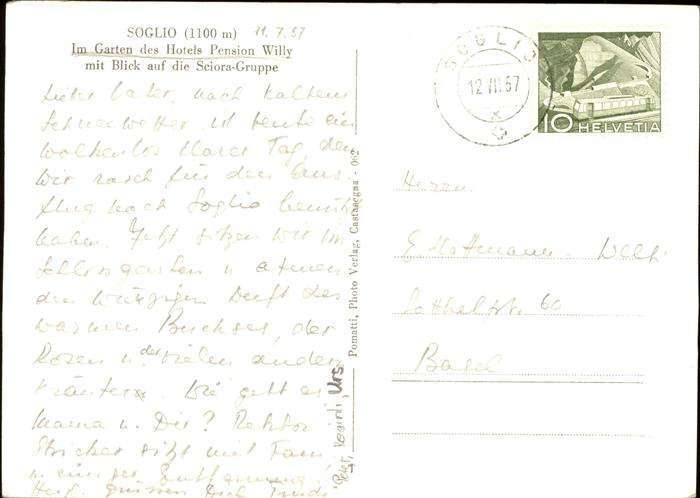 SOGLIO (1100 m) 11.7.57
Im Garten des Hotels Pension Willy
mit Blick auf die Sciora-Gruppe
Lieber Vater, nach kaltem
Schneewetter ist heute ein
wolkenlos klarer Tag den
wir rasch für den Aus-
flug nach Soglio benützt
haben. Jetzt sitzen wir im
Schlossgarten u. atmen
den würzigen Duft des
warmen Buchses, der
Rosen u. der vielen andern
Kräuter. Wie geht es
Mama u. Dir? Rektor
Stricker sitzt mit Fam.
in einiger Entfernung!
Herzl. grüssen Dich
Peter, Urs
Pomatti, Photo Verlag, Castasegna - 062
SOGLIO
12.VII.57
10 HELVETIA
Herrn
E. Hoffmann-
60
Basel